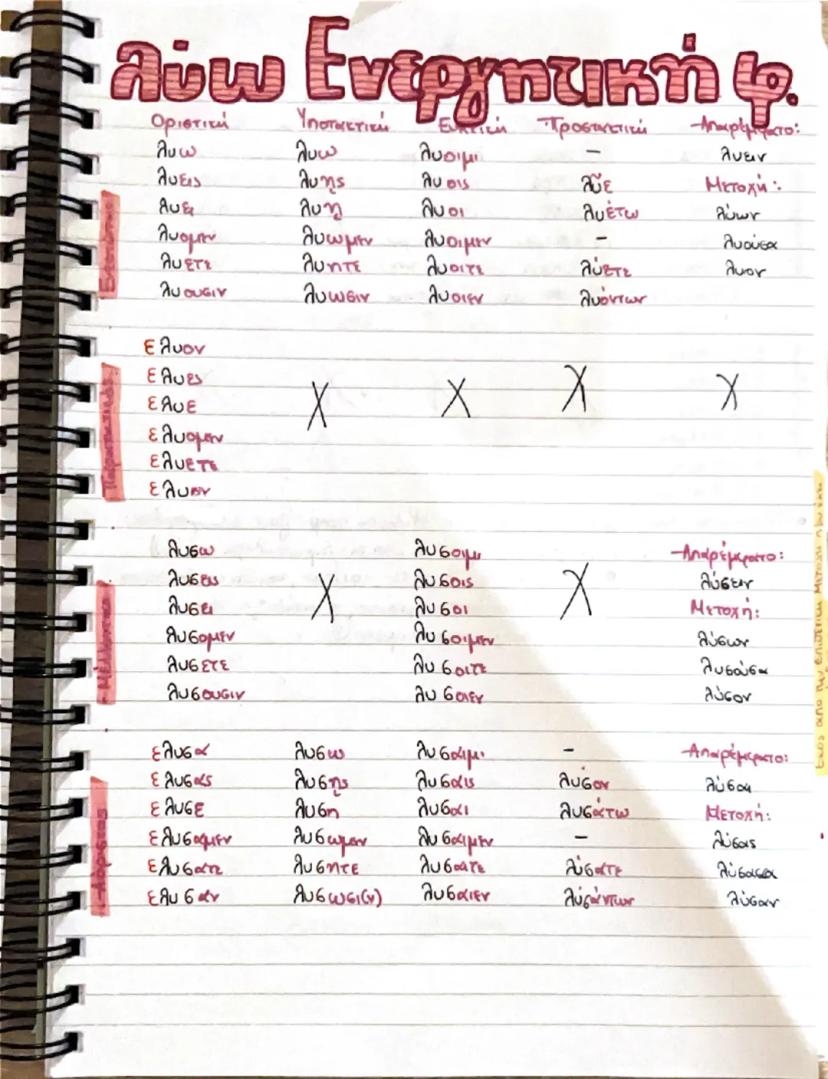 λύω Ενεργητική φ.
Οριστική Υποτακτική Ευκτική Προστακτική Απαρέμφατο:
λυω λυω λυοιμι – λυειν
λυεις λυῃς λυοις λῦε Μετοχή:
λυει λυῃ λυοι λυέτω λύων
λυομεν λυωμεν λυοιμεν – λυούσα
λυετε λυητε λυοιτε λύετε λυον
λυουσιν λυωσιν λυοιεν λυόντων
Ενεστώτας
ελυον
ελυες
ελυε Χ Χ Χ Χ
ελυομεν
ελυετε
ελυον
Παρατατικός
λυσω λυσοιμι Απαρέμφατο:
λυσεις Χ λυσοις Χ λύσειν
λυσει λυσοι Μετοχή:
λυσομεν λυσοιμεν λύσων
λυσετε λυσοιτε λυσούσα
λυσουσιν λυσοιεν λύσον
Μέλλοντας
ελυσα λυσω λυσαιμι – Απαρέμφατο:
ελυσας λυσῃς λυσαις λυσον λύσαι
ελυσε λυσῃ λυσαι λυσάτω Μετοχή:
ελυσαμεν λυσωμεν λυσαιμεν – λύσας
ελυσατε λυσητε λυσαιτε λύσατε λύσασα
ελυσαν λυσωσι(ν) λυσαιεν λύσάντων λύσαν
Αόριστος